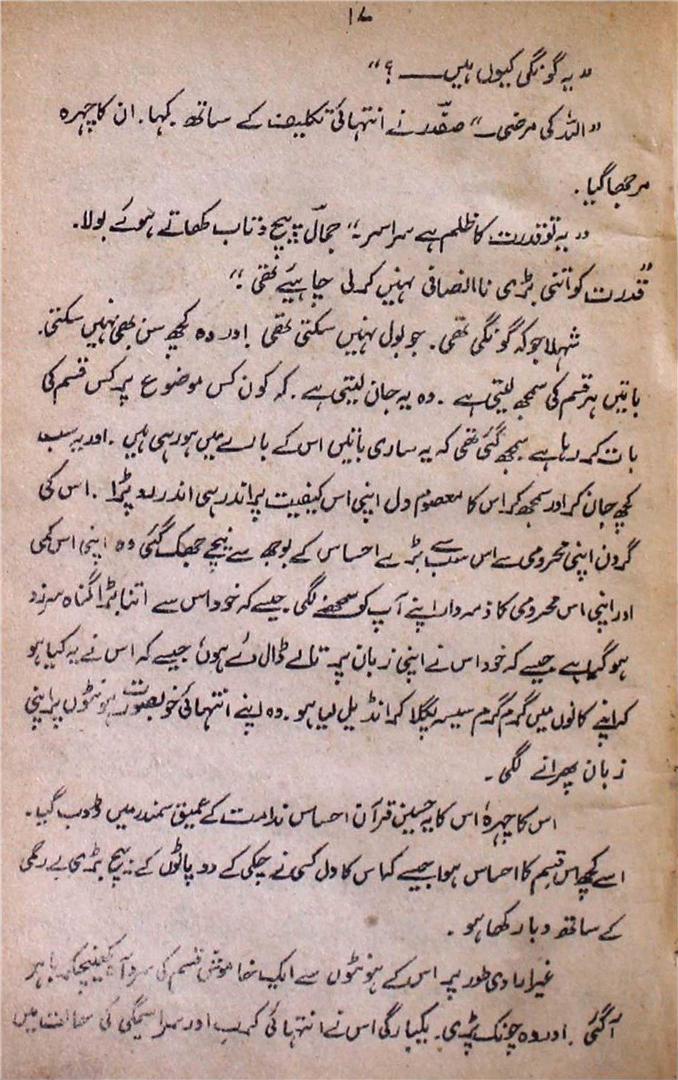 ۱۷
"یہ گونگی کیوں ہیں ــــ ؟"
"اللہ کی مرضی ــ" صفدر نے انتہائی تکلیف کے ساتھ کہا۔ ان کا چہرہ
مرجھا گیا۔
"یہ تو قدرت کا ظلم ہے سراسر۔" جمال پیچ و تاب کھاتے ہوئے بولا۔
"قدرت کو اتنی بڑی ناانصافی نہیں کرنی چاہیئے تھی۔"
شہلا جو کہ گونگی تھی۔ جو بول نہیں سکتی تھی اور وہ کچھ سن بھی نہیں سکتی۔
باتیں ہر قسم کی سمجھ لیتی ہے۔ وہ یہ جان لیتی ہے۔ کہ کون کس موضوع پر کس قسم کی
بات کر رہا ہے سمجھ گئی تھی کہ یہ ساری باتیں اس کے بارے میں ہو رہی ہیں۔ اور یہ سب
کچھ جان کر اور سمجھ کر اس کا معصوم دل اپنی اس کیفیت پر اندر ہی اندر رو پڑا۔ اس کی
گردن اپنی محرومی سے اس سب سے بڑے احساس کے بوجھ سے نیچے جھک گئی وہ اپنی اس کمی
اور اپنی اس محرومی کا ذمہ دار اپنے آپ کو سمجھنے لگی جیسے کہ خود اس سے اتنا بڑا گناہ سرزد
ہو گیا ہے جیسے کہ خود اس نے اپنی زبان پر تالے ڈال دئے ہوں، جیسے کہ اس نے یہ کیا ہو
کہ اپنے کانوں میں گرم گرم سیسہ پگلا کر انڈیل لیا ہو۔ وہ اپنے انتہائی خوبصورت ہونٹوں پر اپنی
زبان پھرانے لگی۔
اس کا چہرہ، اس کا یہ حسین قرآن احساس ندامت کے عمیق سمندر میں ڈوب گیا۔
اسے کچھ اس قسم کا احساس ہوا جیسے کہ اس کا دل کسی نے چکی کے دو پاٹوں کے بیچ بڑی بے رحمی
کے ساتھ دبا رکھا ہو۔
غیر ارادی طور پر اس کے ہونٹوں سے ایک خاموش قسم کی سرد آہ کھینچکر باہر
آ گئی۔ اور وہ چونک پڑی۔ یکبارگی اس نے انتہائی کرب اور سراسیمگی کی حالت میں